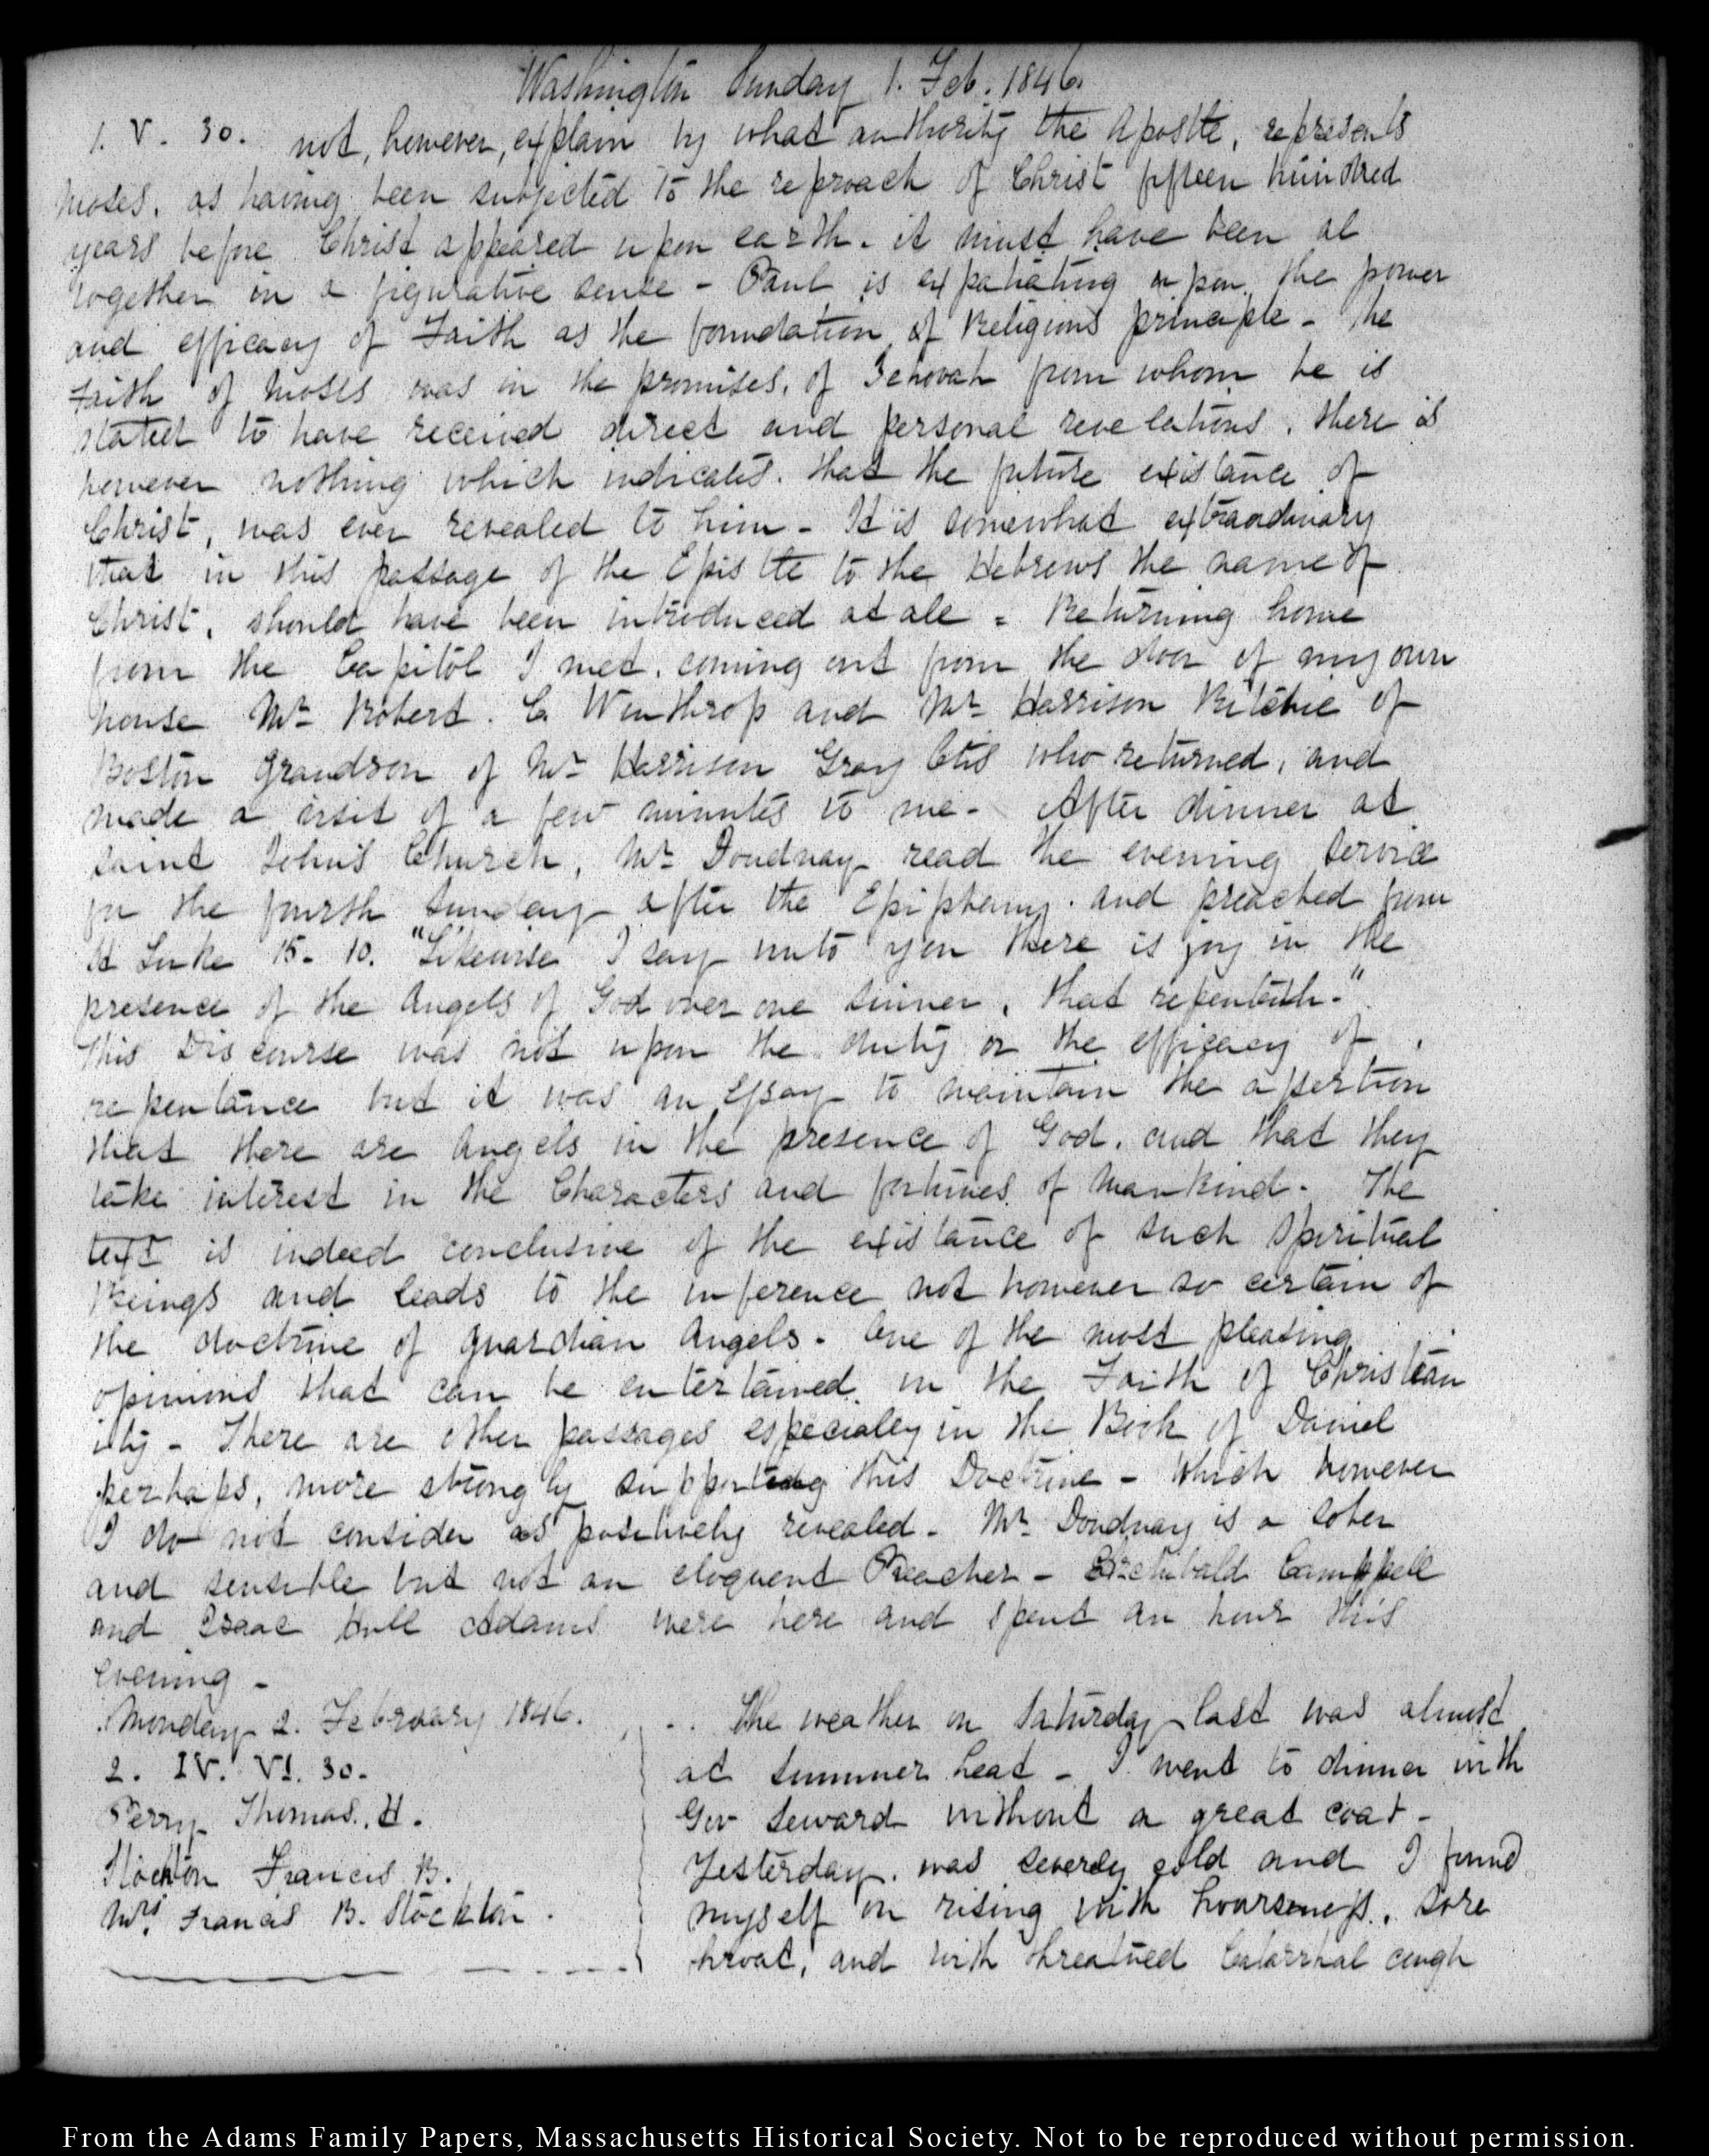 Washington Sunday 1. Feb. 1846.
1. V. 30. not, however, explain by what authority the Apostle, represents
Moses, as having been subjected to the reproach of Christ fifteen hundred
years before Christ appeared upon earth. it must have been al
together in a figurative sense - Paul is expatiating upon the power
and efficacy of Faith as the foundation of Religious principle - The
Faith of Moses was in the promises, of Jehovah from whom he is
stated to have received direct and personal revelations. there is
however nothing which indicates. that the future existance of
Christ, was ever revealed to him - It is somewhat extraordinary
that in this passage of the Epistle to the Hebrews the name of
Christ, should have been introduced at all = Returning home
from the Capitol I met, coming out from the door of my own
house Mr. Robert. C. Winthrop and Mr. Harrison Ritchie of
Boston grandson of Mr. Harrison Gray Otis who returned, and
made a visit of a few minutes to me - After dinner at
saint John's Church, Mr. Doudnay read the evening service
for the fourth Sunday after the Epiphany. and preached from
St Luke 15. 10. "Likewise I say unto you there is joy in the
presence of the Angels of God over one sinner, that repenteth."
This Discourse was not upon the duty or the efficacy of
repentance but it was an Essay to maintain the assertion
that there are Angels in the presence of God. and that they
take interest in the Characters and fortunes of Mankind. The
text is indeed conclusive of the existance of such Spiritual
Beings and leads to the inference not however so certain of
the doctrine of guardian Angels. One of the most pleasing
opinions that can be entertained in the Faith of Christian
ity - There are other passages especialey in the Book of Daniel
perhaps, more strongly supporting this Doctrine - Which however
I do not consider as positively revealed - Mr. Doudnay is a sober
and sensible but not an eloquent Preacher - Archibald Camppell
and Isaac Hull Adams were here and spent an hour this
evening -
Monday 2. February 1846.
2. IV. VI. 30.
Perry Thomas. H.
Stockton Francis B.
Mrs. Francis B. Stockton.
The weather on Saturday last was almost
at Summer heat - I went to dinner with
Gov Seward without a great coat -
Yesterday. was severely cold and I found
myself on rising with hoarseness, sore
throat, and with threatned Catarrhal cough
From the Adams Family Papers, Massachusetts Historical Society. Not to be reproduced without permission.